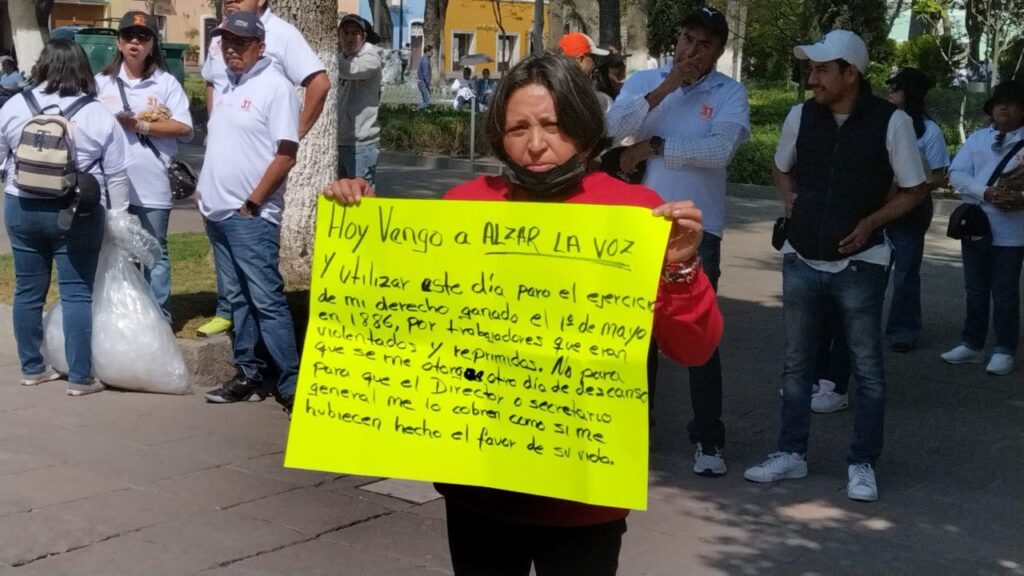 Hoy Vengo a ALZAR LA VOZ
Y utilizar este día para el ejercicio
de mi derecho ganado el 1º de mayo
en 1886, por trabajadores que eran
violentados y reprimidos. No para
que se me otorgue otro día de descanso
para que el Director o secretario
general me lo cobren como si me
hubiecen hecho el favor de su vida.
31
31
31